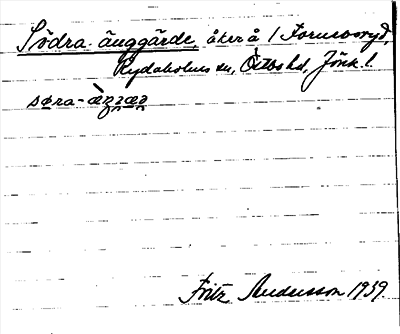 Södra änggärde, åker å / Forneboryd,
Rydaholms sn, Östbo hd, Jönk. l.
søra-
Fritz Andersson 1939